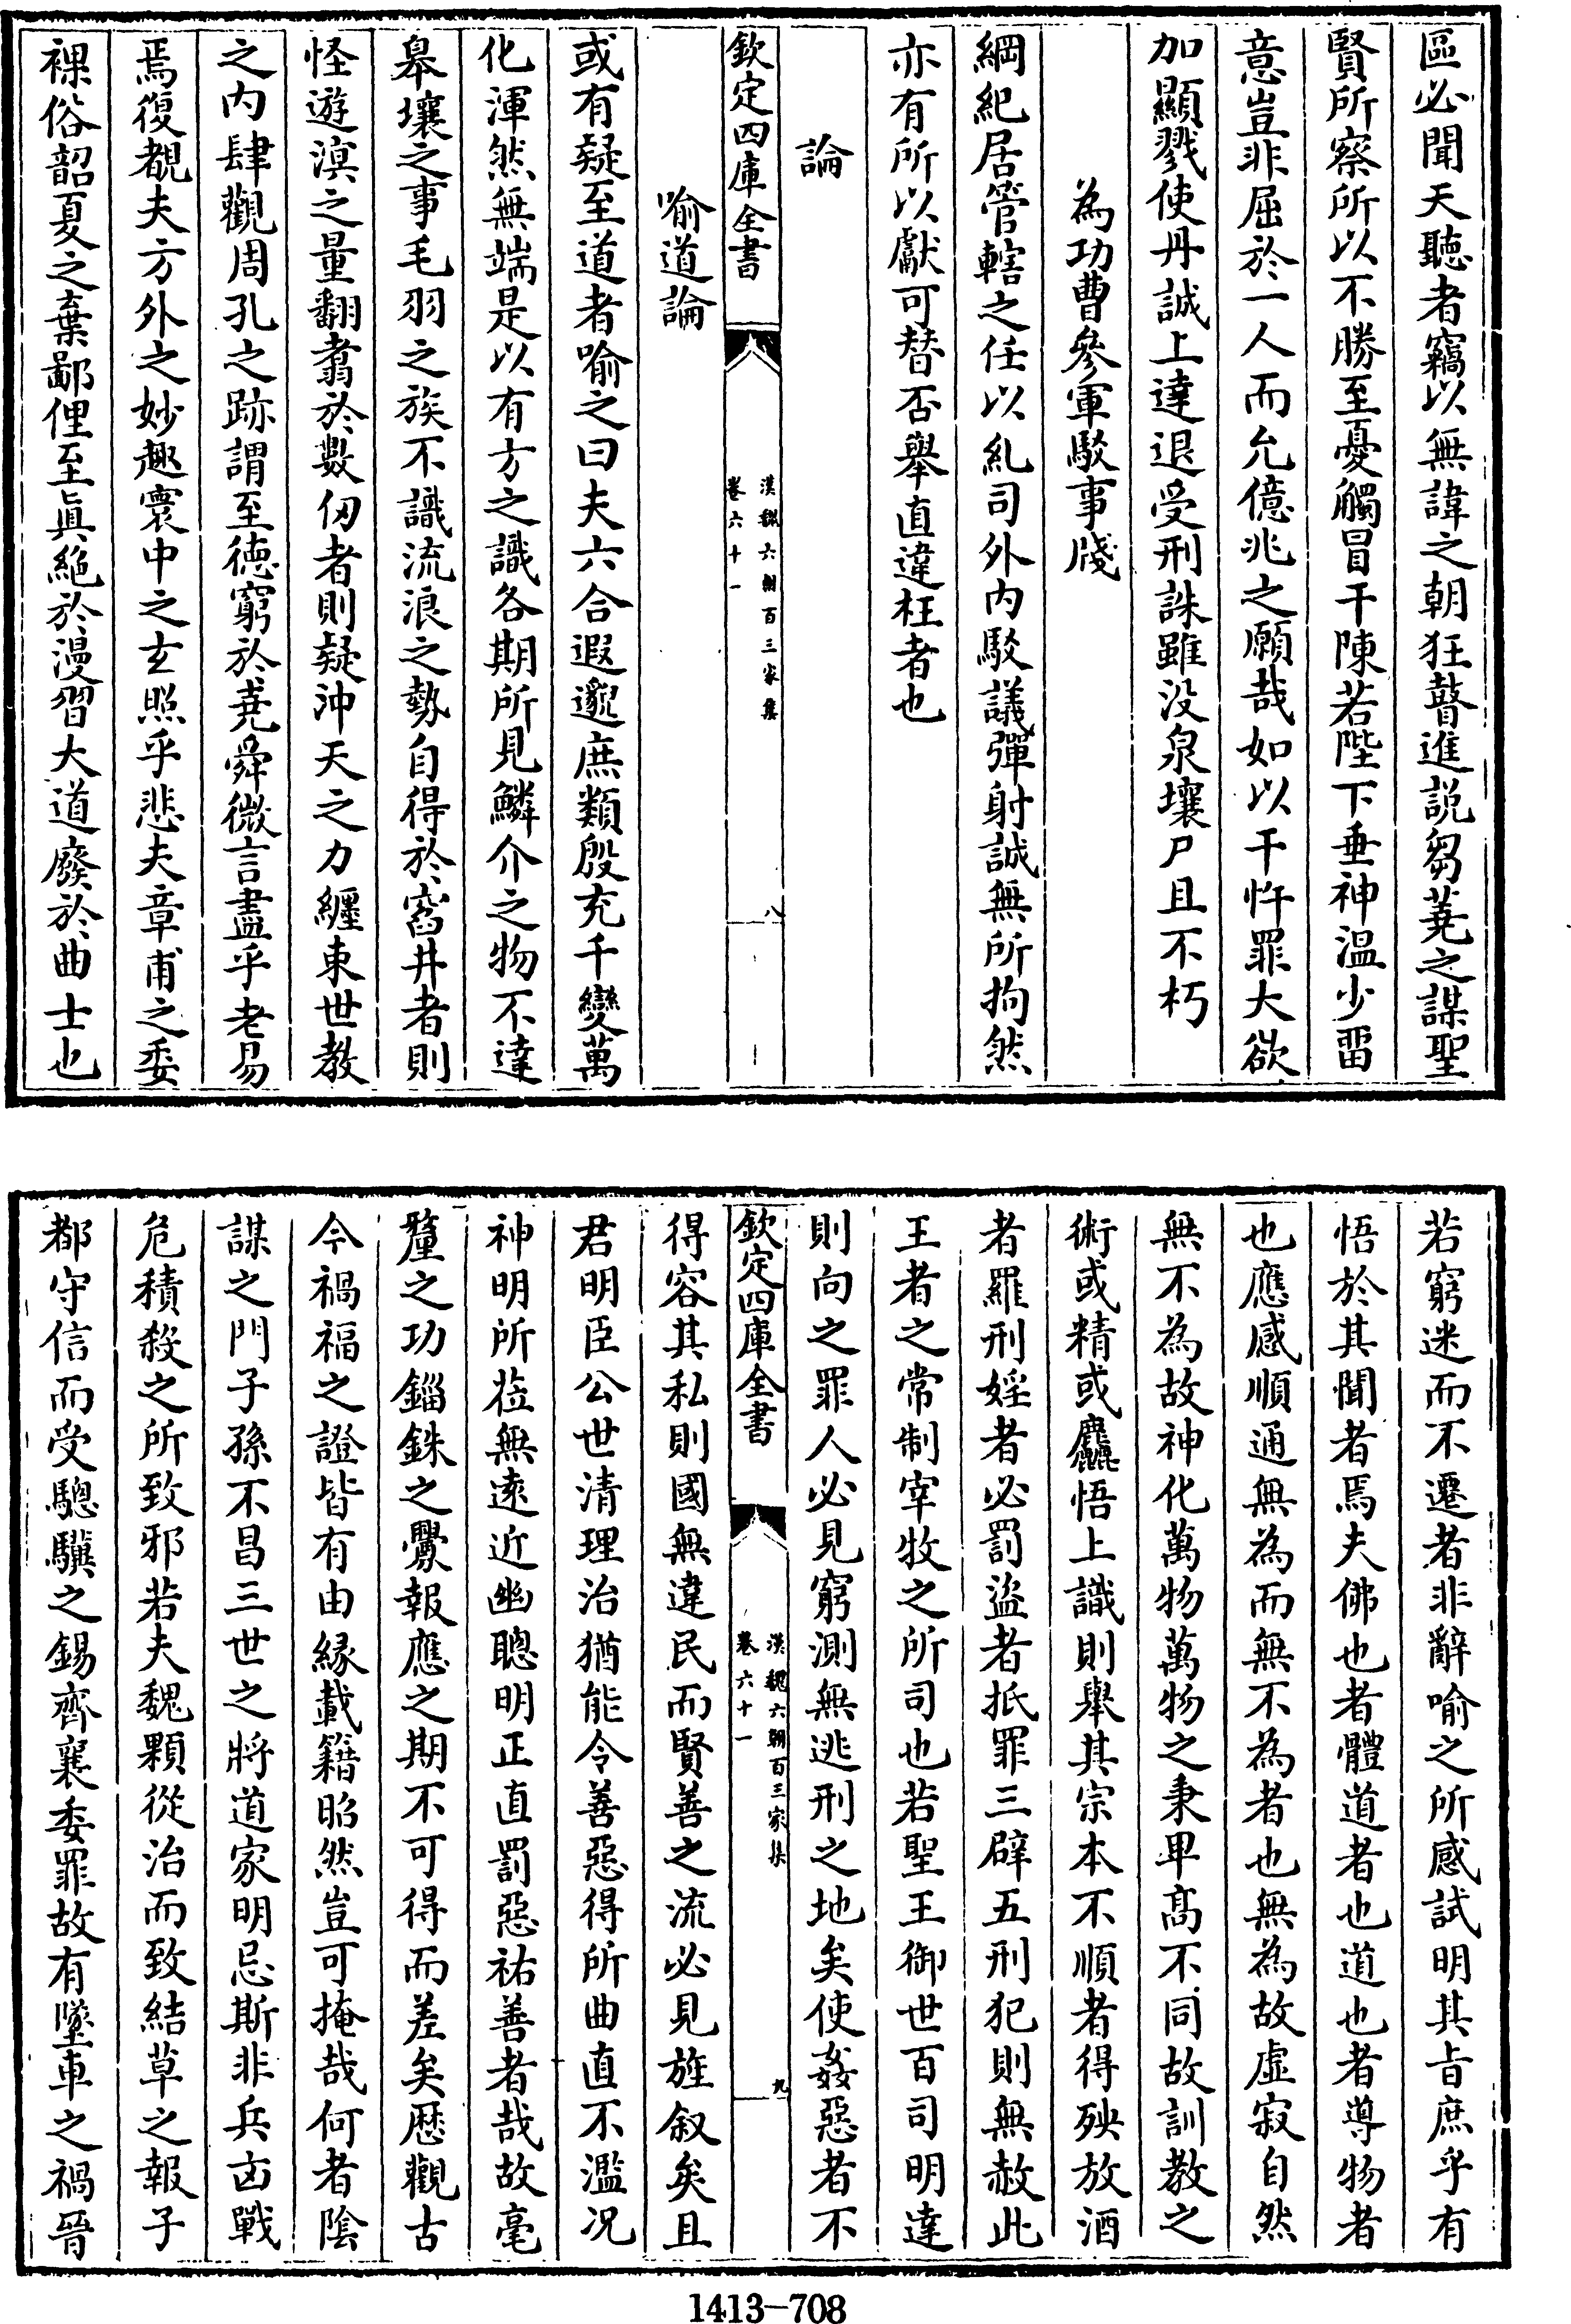 區必聞天聽者竊以無諱之朝狂瞽進説芻蕘之謀聖
賢所察所以不勝至憂觸冒干陳若陛下垂神溫少畱
意豈非屈於一人而允億兆之願哉如以干忤罪大欲
加顯戮使丹誠上達退受刑誅雖没泉壤尸且不朽
為功曹參軍駁事牋
綱紀居管轄之任以糺司外内駁議彈射誠無所拘然
亦有所以獻可替否舉直違枉者也
論
欽定四庫全書
漢魏六朝百三家集
卷六十一
八
喻道論
或有疑至道者喻之曰夫六合遐邈庶類殷充千變萬
化渾然無端是以有方之識各期所見鱗介之物不達
皋壤之事毛羽之族不識流浪之勢自得於窞井者則
怪遊溟之量翻翥於數仞者則疑沖天之力纏束世教
之内肆觀周孔之跡謂至徳窮於堯舜微言盡乎老易
焉復覩夫方外之妙趣寰中之玄照乎悲夫章甫之委
裸俗韶夏之棄鄙俚至眞絶於漫習大道廢於曲士也
若窮迷而不遷者非辭喻之所感試明其旨庶乎有
悟於其聞者焉夫佛也者體道者也道也者導物者
也應感順通無為而無不為者也無為故虛寂自然
無不為故神化萬物萬物之秉卑髙不同故訓教之
術或精或麤悟上識則舉其宗本不順者得殃放酒
者羅刑婬者必罰盜者抵罪三辟五刑犯則無赦此
王者之常制宰牧之所司也若聖王御世百司明達
則向之罪人必見窮測無逃刑之地矣使姦惡者不
欽定四庫全書
漢魏六朝百三家集
卷六十一
九
得容其私則國無違民而賢善之流必見旌叙矣且
君明臣公世清理治猶能令善惡得所曲直不濫况
神明所莅無逺近幽聰明正直罰惡祐善者哉故毫
釐之功錙銖之釁報應之期不可得而差矣歴觀古
今禍福之證皆有由縁載籍昭然豈可掩哉何者陰
謀之門子孫不昌三世之將道家明忌斯非兵凶戰
危積殺之所致邪若夫魏顆從治而致結草之報子
都守信而受驄驥之錫齊襄委罪故有墜車之禍晉
1413—708